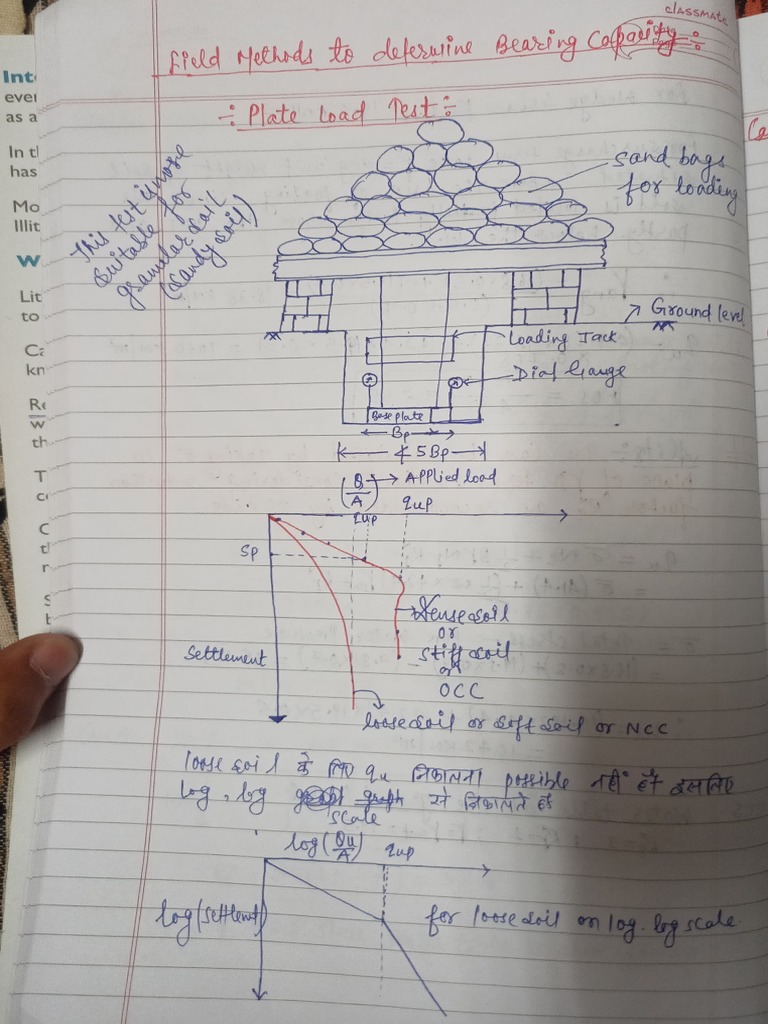 classmate
Field Methods to determine Bearing Capacity ÷
÷ Plate Load Test ÷
This test is more
suitable for
granular soil
(sandy soil)
sand bags
for loading
Ground level
Loading Jack
Dial Gauge
Base plate
Bp
≮ 5Bp
(Q/A) → Applied load
qup qup
Sp
Dense soil
or
stiff soil
or
OCC
Settlement
loose soil or soft soil or NCC
loose soil के लिए qu निकालना possible नहीं है इसलिए
log, log graph से निकालते है
scale
log(Qu/A) qup
log(settlemt)
for loose soil on log. log scale
Inte
ever
as a
In tl
has
Mo
Illit
W
Lit
to
Ca
kn
Re
w
th
T